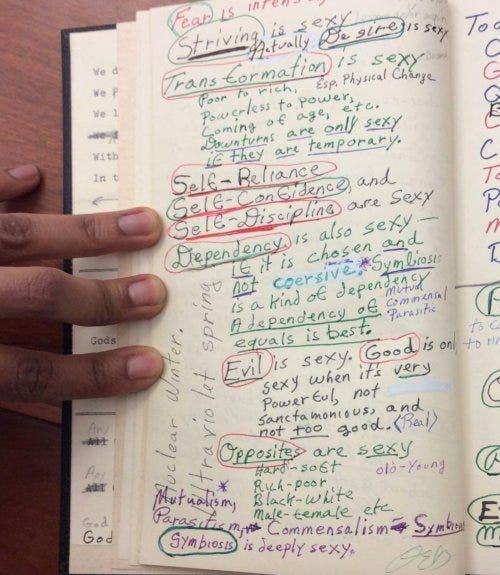 Fear is intens
Striving is sexy
Actually Desire is sexy
Transformation is sexy
Esp. Physical Change
Poor to rich,
Powerless to power,
Coming of age, etc.
Downturns are only sexy
if they are temporary.
Self-Reliance
Self-Confidence, and
Self-Discipline are sexy
Dependency is also sexy—
if it is chosen and
not coersive. *Symbiosis
is a kind of dependency
Mutual
Commensal
Parasitic
A dependency of
equals is best.
Evil is sexy. Good is onl
sexy when it's very
powerful, not
sanctamonious, and
not too good. (Real)
Opposites are sexy
Hard-soft
old-young
Rich-poor
Black-white
Male-female etc.
Mutualism,*
Parasitism, Commensalism Symbios
Symbiosis is deeply sexy.
Nuclear Winter.
Ultraviolet spring
We d
We p
We l
With
In t
Gods
Any
All
Any
All
God
God